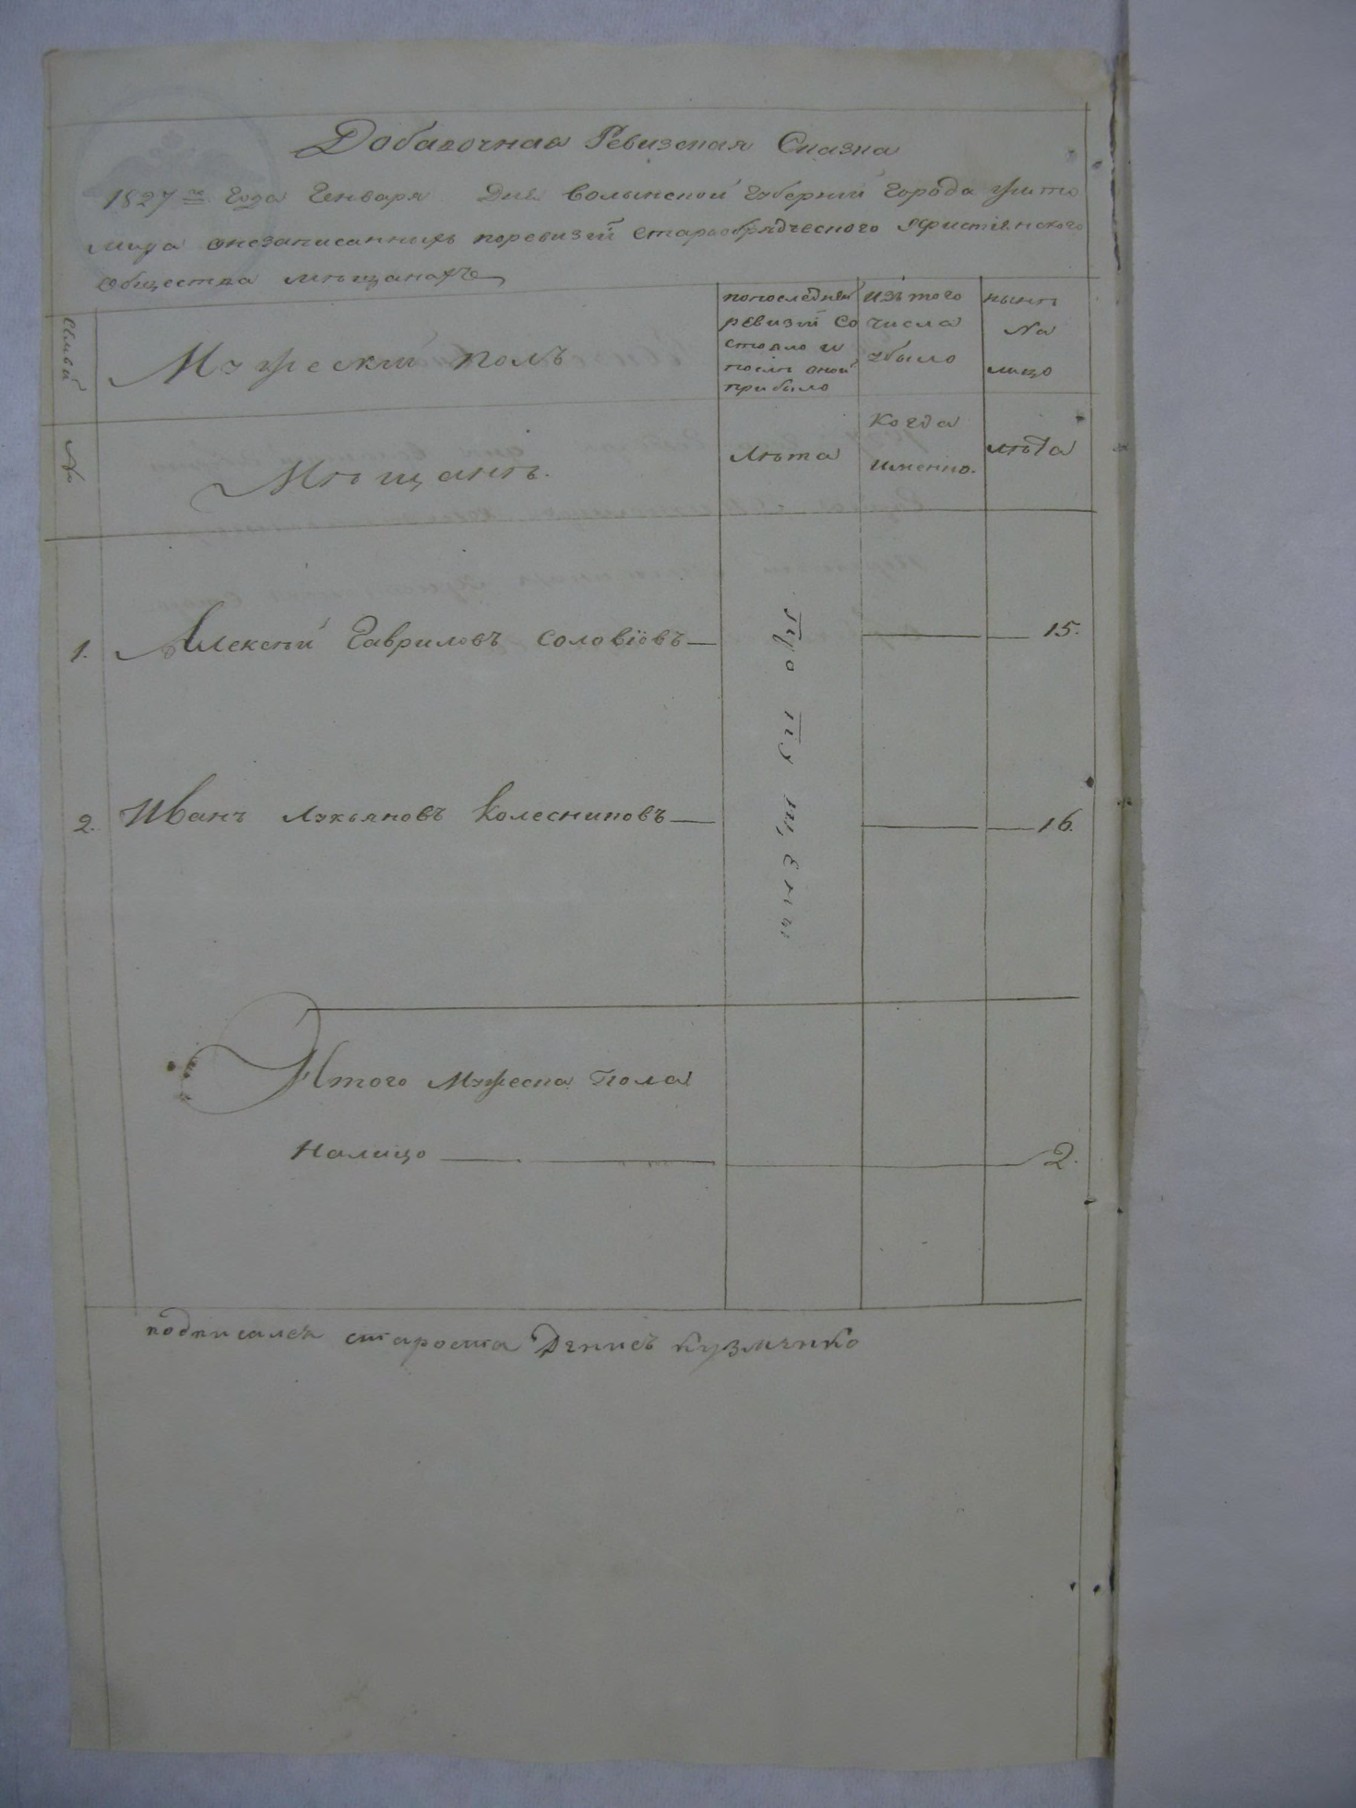 Добавочная Ревизская Сказка
1827го Года Генваря Дня Волынской Губернии Города Жито
мира онезаписанныхъ поревизіи старообрядческого Христіянского
Общества мѣщанахъ
Мужески полъ
попоследней
ревизіи со
стояло и
послѣ оной
прибыло
изъ того
числа
убыло
нынѣ
на
лицо
№
Мѣщанѣ.
Лѣта
Когда
именно.
лѣта
1. Алексѣй Гавриловъ Соловіовъ — 15.
2. Иванъ Лукьяновъ Колесниковъ — 16.
Итого Мужеска Пола
Налицо — 2.
подписался староста Денисъ Кузменко